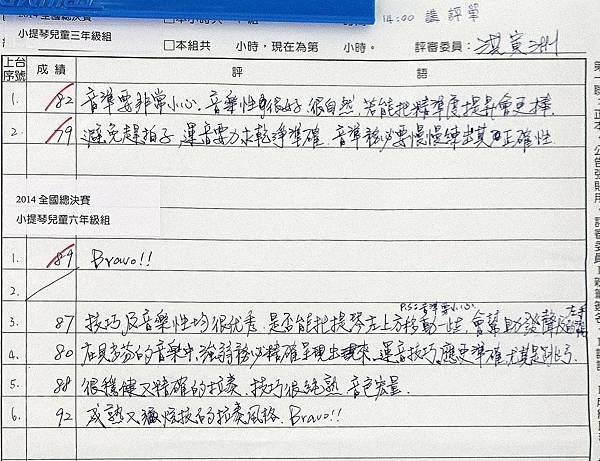 2014 全國總決賽
小提琴兒童三年級組
14:00 講評單
□本組共 小時,現在為第 小時。 評審委員:
上台序號 成績 評語
1. 82 音準要非常小心,音樂性很好,很自然,若能把精準度提昇會更棒.
2. 79 避免趕拍子,運音要力求乾淨準確,音準務必要慢慢練出其正確性
2014 全國總決賽
小提琴兒童六年級組
1. 89 Bravo!!
2.
P.S:音準要小心
3. 87 技巧及音樂性均很優秀,是否能把提琴左上方移動一些,會幫助發聲及左手
4. 80 在貝多芬的音樂中,強弱務必精確呈現出來,運音技巧應更準確尤其是
5. 88 很穩健又精確的拉奏,技巧很純熟,音色宏量
6. 92 成熟又炫技的拉奏風格,Bravo!!